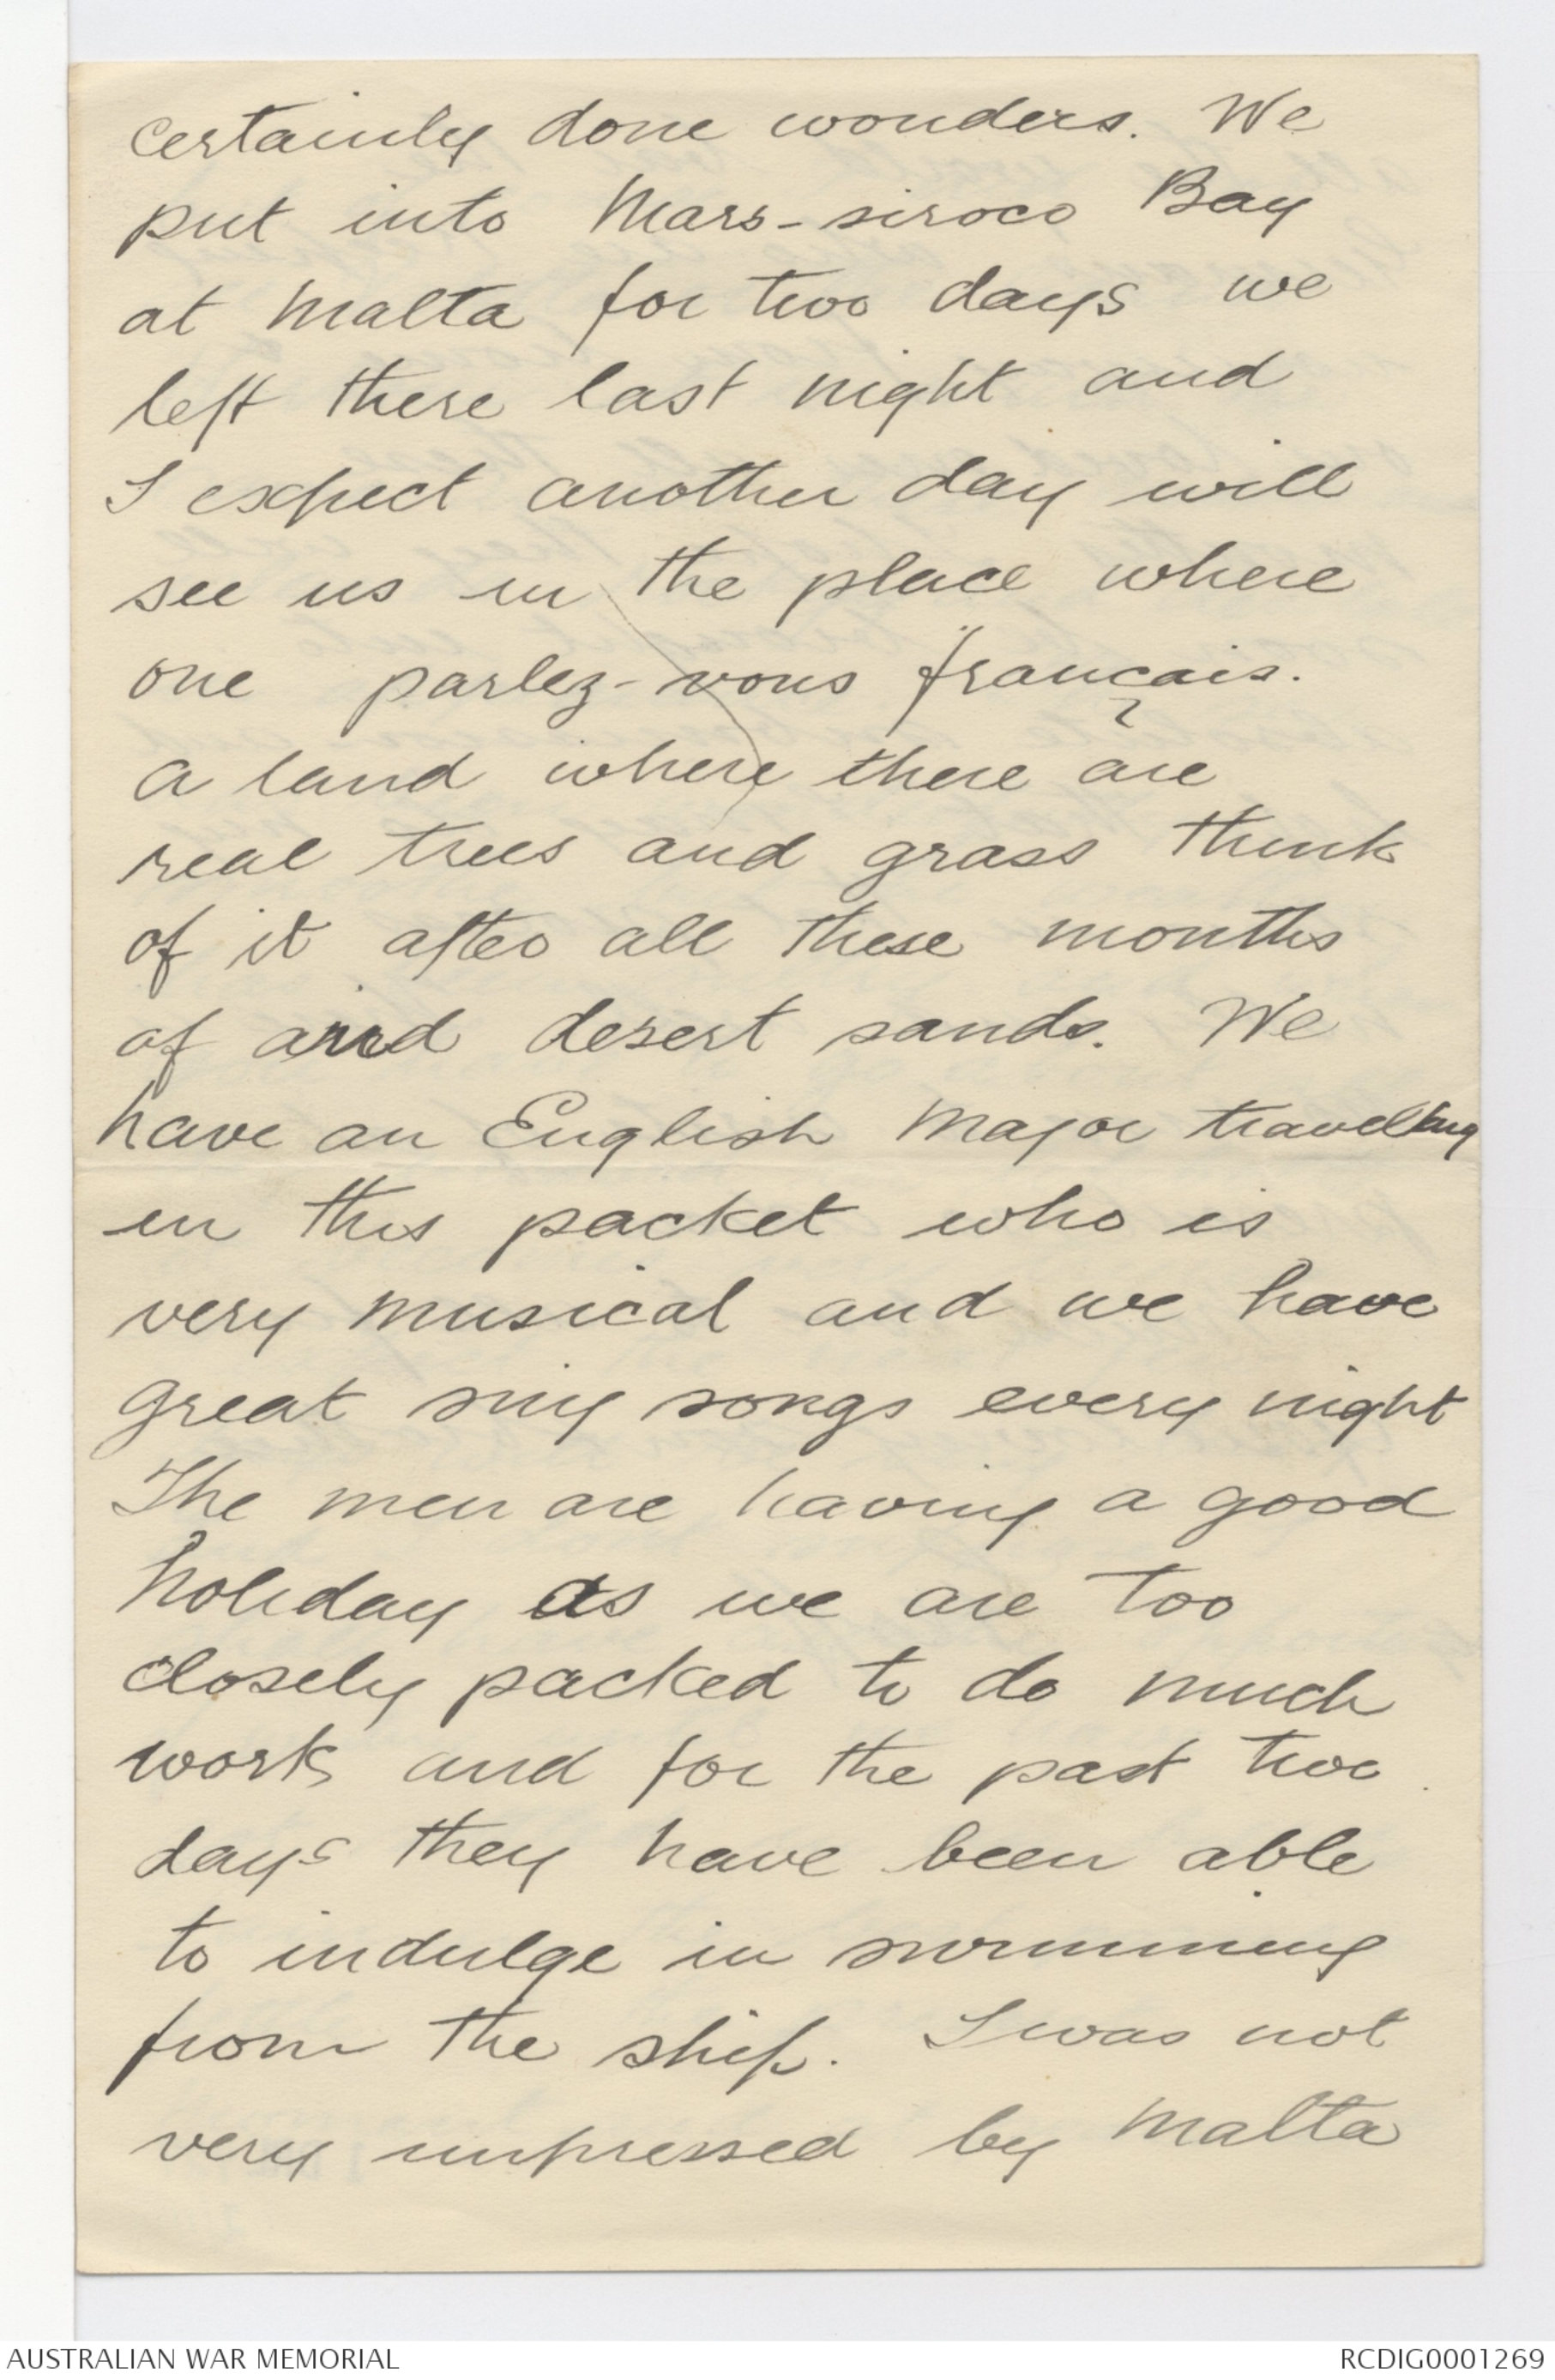 certainly done wonders. We
put into Mars-siroco Bay
at Malta for two days we
left there last night and
I expect another day will
see us in the place where
one parlez-vous français.
a land where there are
real trees and grass think
of it after all these months
of arid desert sands. We
have an English Major travelling
in this packet who is
very musical and we have
great sing songs every night
The men are having a good
holiday as we are too
closely packed to do much
work and for the past two
days they have been able
to indulge in swimming
from the ship. I was not
very impressed by Malta
AUSTRALIAN WAR MEMORIAL
RCDIG0001269